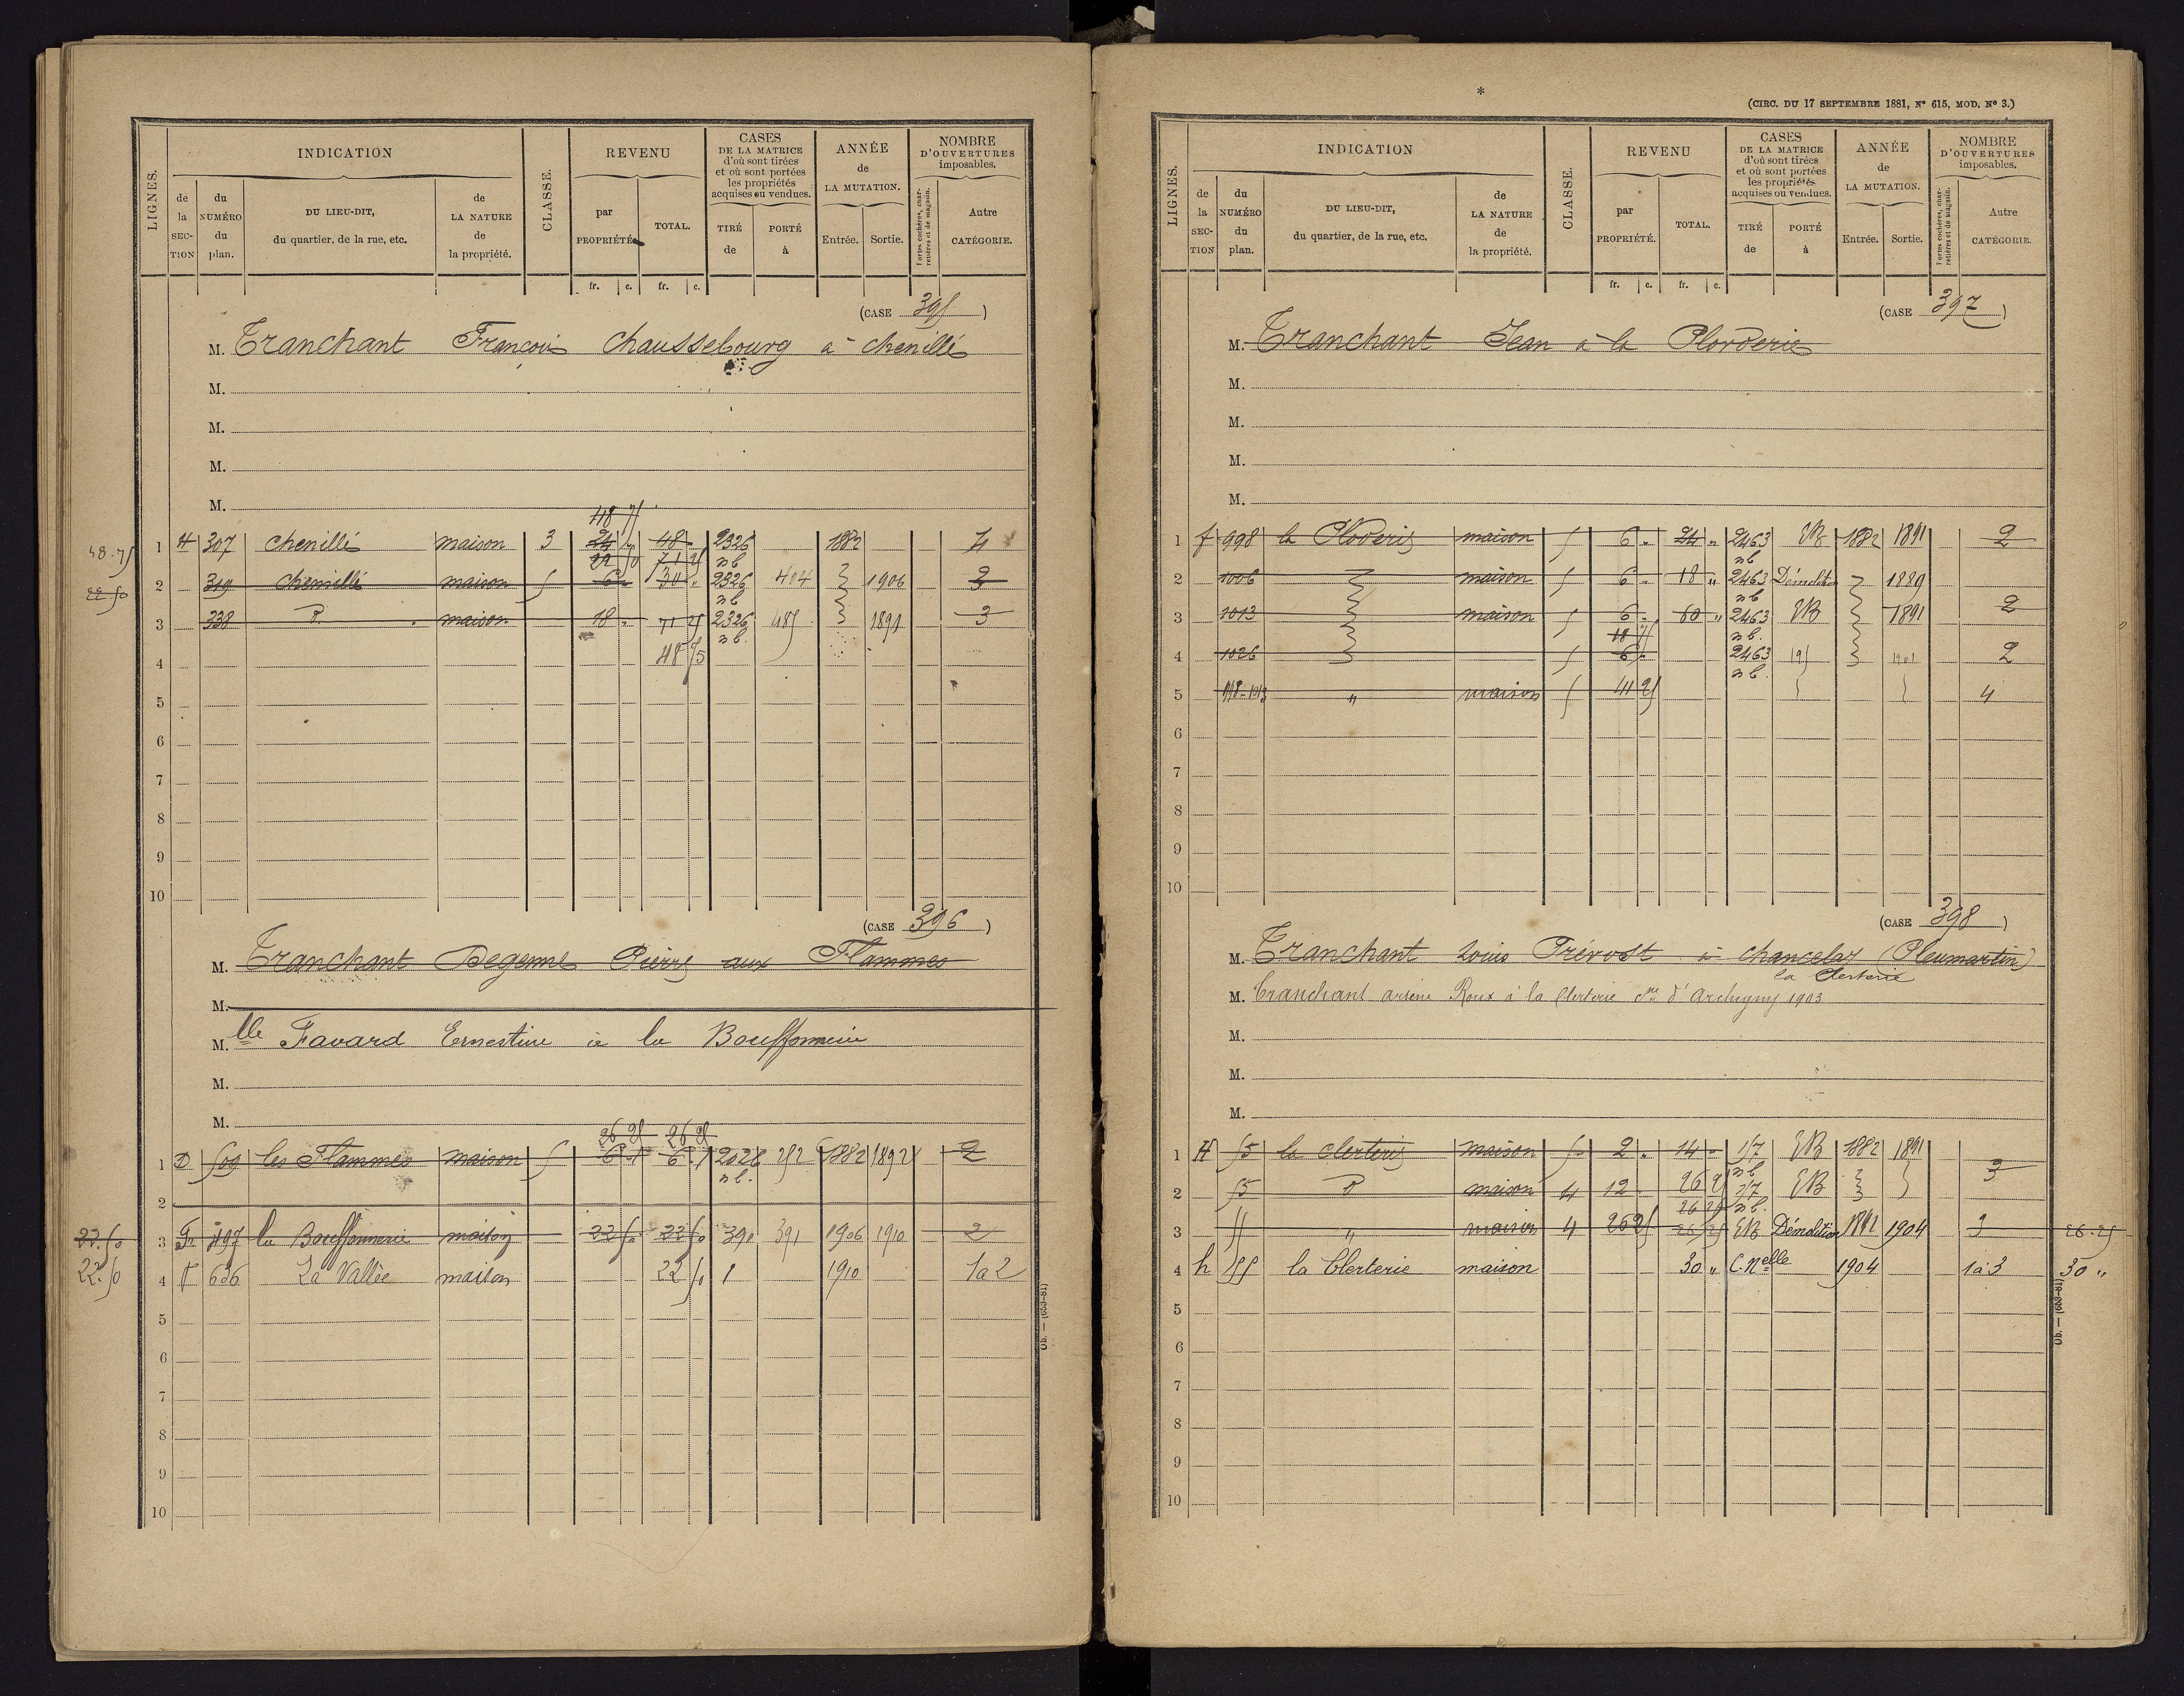 INDICATION
REVENU
CASES
DE LA MATRICE
d'où sont tirées
et où sont portées
les propriétés
acquises ou vendues.
ANNÉE
de
LA MUTATION.
NOMBRE
D'OUVERTURES
imposables.
LIGNES.
de
la
SEC-
TION
du
NUMÉRO
du
plan.
DU LIEU-DIT,
du quartier, de la rue, etc.
de
LA NATURE
de
la propriété.
CLASSE.
par
PROPRIÉTÉ.
TOTAL.
TIRÉ
de
PORTÉ
à
Entrée.
Sortie.
Portes cochères, char-
retières et de magasin.
Autre
CATÉGORIE.
fr. c. fr. c.
(CASE 395)
M. Tranchant François Chaussebourg à chenillé
M.
M.
M.
M.
48 75
48.75 1 H 307 chenillé maison 3 24 48 2326 1882 4
22 50 71 25 nb
22 50 2 319 chenillé maison 5 6 30 2326 404 1906 2
nb
3 338 d. maison 18 71 25 2326 485 1891 3
48 75 nb.
4
5
6
7
8
9
10
(CASE 396)
M. Tranchant Degenne Pierre aux Flammes
M.
M. lle Favard Ernestine à la Bouffonnerie
M.
M.
26 25 26 25
1 D 509 les Flammes maison 5 6 6 2028 252 1882 1892 2
nb.
2
22.50 3 497 la Bouffonnerie maison 22 50 22 50 390 391 1906 1910 2
22.50 4 F 636 La Vallée maison 22 50 1 1910 1a2
5
6
7
8
9
10
Ob. — (653-81)
*
(CIRC. DU 17 SEPTEMBRE 1881, N° 615, MOD. N° 3.)
INDICATION
REVENU
CASES
DE LA MATRICE
d'où sont tirées
et où sont portées
les propriétés
acquises ou vendues.
ANNÉE
de
LA MUTATION.
NOMBRE
D'OUVERTURES
imposables.
LIGNES.
de
la
SEC-
TION
du
NUMÉRO
du
plan.
DU LIEU-DIT,
du quartier, de la rue, etc.
de
LA NATURE
de
la propriété.
CLASSE.
par
PROPRIÉTÉ.
TOTAL.
TIRÉ
de
PORTÉ
à
Entrée.
Sortie.
Portes cochères, char-
retières et de magasin.
Autre
CATÉGORIE.
fr. c. fr. c.
(CASE 397)
M. Tranchant Jean à la Plorderie
M.
M.
M.
M.
1 f 998 la Ploderie maison 5 6 " 24 " 2463 EB 1882 1891 2
nb
2 1006 maison 5 6 " 18 " 2463 Démolition 1889
nb
3 1013 maison 5 6 " 60 " 2463 EB 1891 2
18 75 nb.
4 1026 5 6 2463 195 1901 2
nb.
5 " maison 5 41 25 4
6
7
8
9
10
(CASE 398)
M. Tranchant Louis Prévost à chancelay (Pleumartin)
la Clerterie
M. Tranchant arsène Roux à la Clerterie cne d'Archigny 1903
M.
M.
M.
1 H 55 la clerterie maison 5 2 " 14 " 157 EB 1882 1891
26 25 nb
2 55 d maison 4 12 EB 3
26 25 nb.
3 55 " maison 4 26 25 26 25 EB Démolition 1904 3 26.25
4 h 555 la Clerterie maison 30 " C. Nelle 1904 1à3 30 "
5
6
7
8
9
10
Ob. — (653-81)